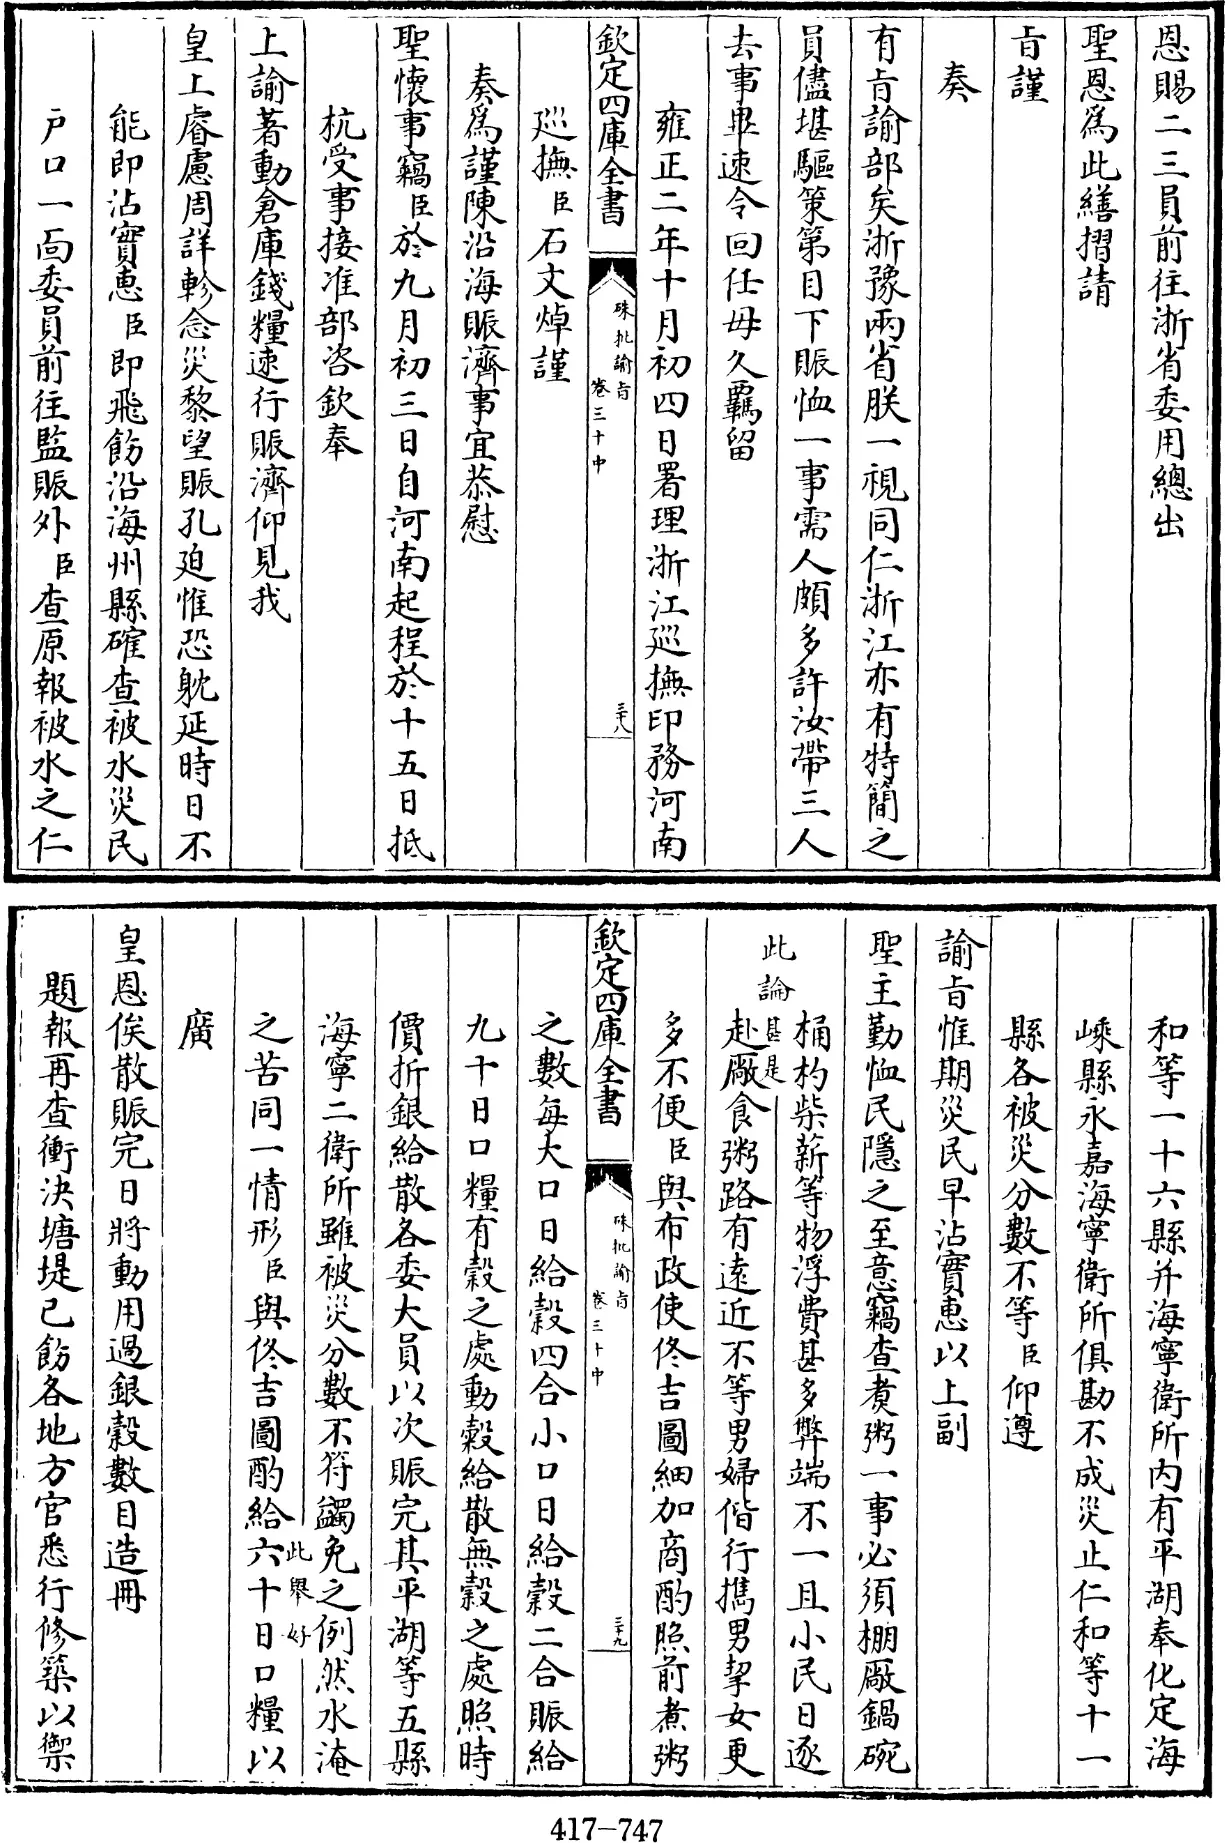 恩賜二三員前往浙省委用總出
聖恩爲此繕摺請
旨謹
奏
有旨諭部矣浙豫兩省朕一視同仁浙江亦有特簡之
員儘堪驅策第目下賑恤一事需人頗多許汝帶三人
去事畢速令回任毋久羈留
雍正二年十月初四日署理浙江巡撫印務河南
欽定四庫全書
硃批諭旨
卷三十中
三十八
巡撫臣石文焯謹
奏爲謹陳沿海賑濟事宜恭慰
聖懷事竊臣於九月初三日自河南起程於十五日抵
杭受事接准部咨欽奉
上諭著動倉庫錢糧速行賑濟仰見我
皇上睿慮周詳軫念災黎望賑孔廹惟恐躭延時日不
能即沾實惠臣即飛飭沿海州縣確查被水災民
户口一面委員前往監賑外臣查原報被水之仁
和等一十六縣并海寧衛所内有平湖奉化定海
嵊縣永嘉海寧衛所俱勘不成災止仁和等十一
縣各被災分數不等臣仰遵
諭旨惟期災民早沾實惠以上副
聖主勤恤民隱之至意竊查煑粥一事必須棚廠鍋碗
桶杓柴薪等物浮費甚多弊端不一且小民日逐
此論甚是
赴廠食粥路有遠近不等男婦偕行擕男挈女更
多不便臣與布政使佟吉圖細加商酌照前煮粥
欽定四庫全書
硃批諭旨
卷三十中
三十九
之數每大口日給穀四合小口日給穀二合賑給
九十日口糧有穀之處動穀給散無穀之處照時
價折銀給散各委大員以次賑完其平湖等五縣
海寧二衛所雖被災分數不符蠲免之例然水淹
此舉好
之苦同一情形臣與佟吉圖酌給六十日口糧以
廣
皇恩俟散賑完日將動用過銀穀數目造冊
題報再查衝決塘堤已飭各地方官悉行修築以禦
417-747